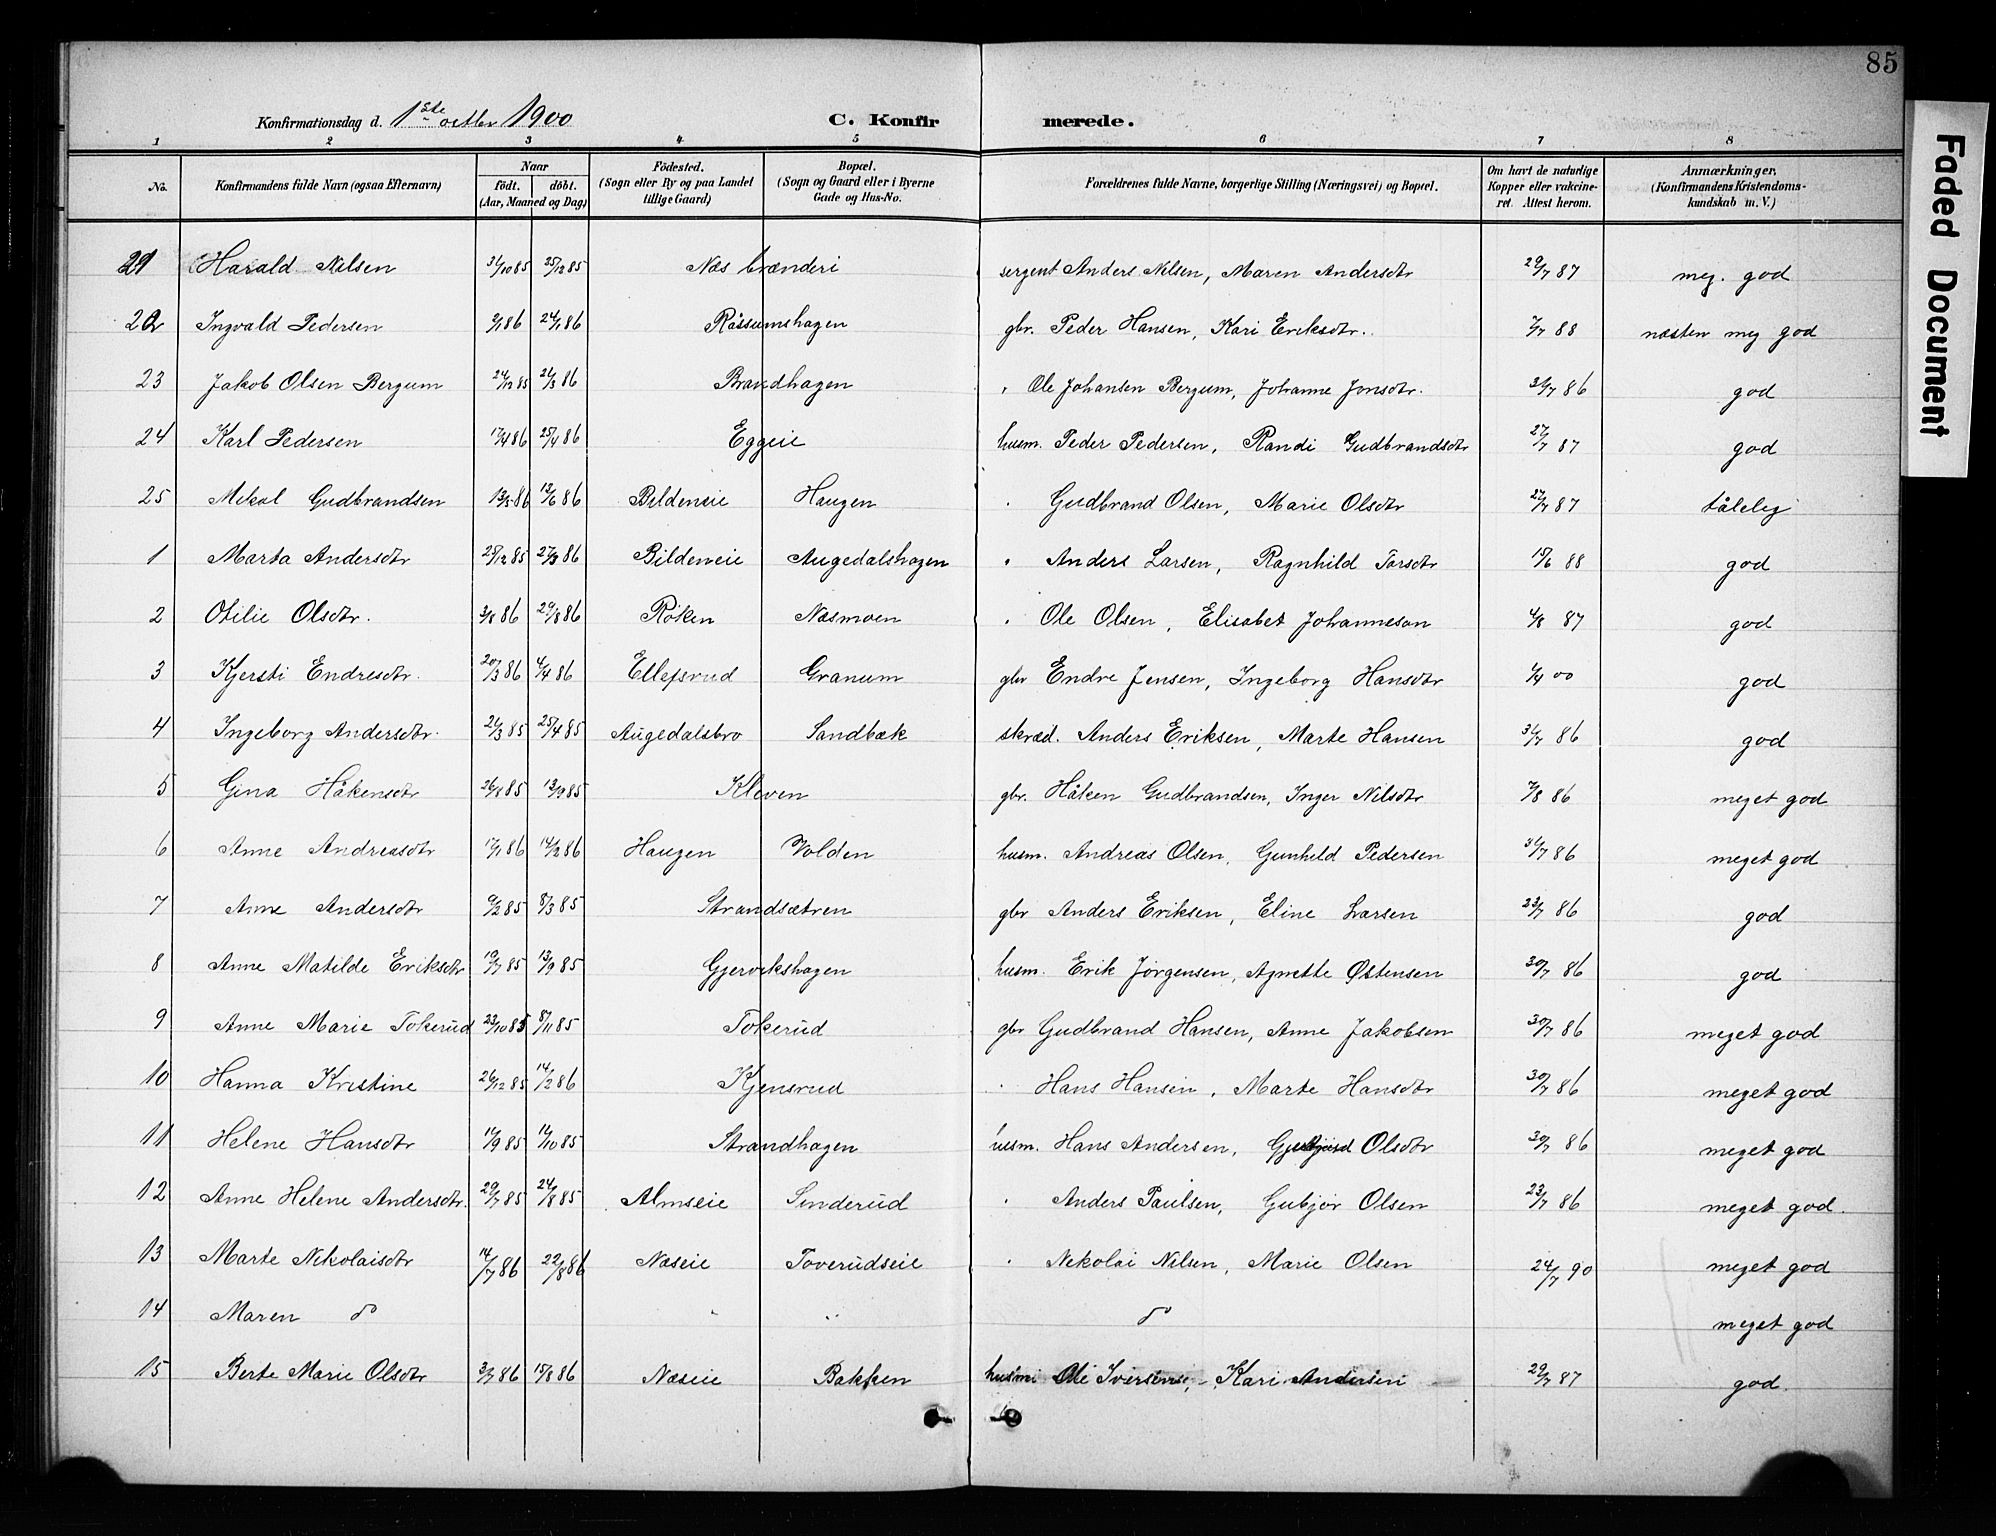 85
Konfirmationsdag d. 1ste octbr 1900 C. Konfirmerede.
1 2 3 4 5 6 7 8
No. Konfirmandens fulde Navn (ogsaa Efternavn) Naar födt. döbt. (Aar, Maaned og Dag) Födested. (Sogn eller By og paa Landet tillige Gaard) Bopæl. (Sogn og Gaard eller i Byerne Gade og Hus-No. Forældrenes fulde Navne, borgerlige Stilling (Næringsvei) og Bopæl. Om havt de naturlige Kopper eller vakcineret. Attest herom. Anmærkninger. (Konfirmandens Kristendomskundskab m. V.)
21 Harald Nilsen 31/10 85 25/12 85 Næs brænderi sergent Anders Nilsen, Maren Andersdtr 29/7 87 meg. god
22 Ingvald Pedersen 86 24/1 86 Råssumshagen gbr. Peder Hansen, Kari Eriksdtr. 7/7 88 næsten meg god
23 Jakob Olsen Bergum 24/12 85 21/3 86 Brandhagen " Ole Johansen Bergum, Johanne Jonsdtr. 86 god
24 Karl Pedersen 17/4 86 25/4 86 Eggeie husm. Peder Pedersen, Randi Gudbrandsdtr 27/7 87 god
25 Mekal Gudbrandsen 13/5 86 13/6 86 Bildeneie Haugen " Gudbrand Olsen, Marie Olsdtr 27/7 87 tålelig
1 Marta Andersdtr 25/12 85 27/3 86 Bildeneie Augedalshagen " Anders Larsen, Ragnhild Torsdtr 15/6 88 god
2 Otilie Olsdtr. 3/8 86 29/8 86 Röken Næsmoen " Ole Olsen, Elisabet Johanneson 4/8 87 god
3 Kjersti Endresdtr. 20/3 86 4/4 86 Ellefsrud Granum gbr Endre Jensen, Ingeborg Hansdtr 00 god
4 Ingeborg Andersdtr. 21/3 85 25/4 85 Augedalsbro Sandbæk skræd. Anders Eriksen, Marte Hansen 31/7 86 god
5 Gina Håkensdtr 26/8 85 13/9 85 Kleven gbr. Håken Gudbrandsen, Inger Nilsdtr 7/8 86 meget god
6 Anne Andreasdtr 17/1 86 14/2 86 Haugen Volden husm. Andreas Olsen, Gunhild Pedersen 31/7 86 meget god
7 Anne Andersdtr 9/2 85 8/3 85 Strandsætren gbr Anders Eriksen, Eline Larsen 23/7 86 god
8 Anne Matilde Eriksdtr 19/7 85 13/9 85 Gjervikshagen husm. Erik Jörgensen, Agnette Östensen 30/7 86 god
9 Anne Marie Tokerud 23/10 85 8/11 85 Tokerud gbr Gudbrand Hansen, Anne Jakobsen 30/7 86 meget god
10 Hanna Kristine 26/12 85 14/2 86 Kjensrud " Hans Hansen, Marte Hansdtr 30/7 86 meget god
11 Helene Hansdtr 14/9 85 85 Strandhagen husm. Hans Andersen, Olsdtr 30/7 86 meget god
12 Anne Helene Andersdtr. 29/7 85 24/8 85 Almseie Sinderud " Anders Paulsen, Gubjör Olsen 23/7 86 meget god.
13 Marte Nikolaisdtr 14/7 86 22/8 86 Næseie Toverudseie " Nekolai Nilsen, Marie Olsen 24/7 90 meget god
14 Maren do " " do meget god
15 Berte Marie Olsdtr 3/7 86 15/8 86 Næseie Bakken husm Ole Iversen, Kari Andersen 29/7 87 god.
Faded Document